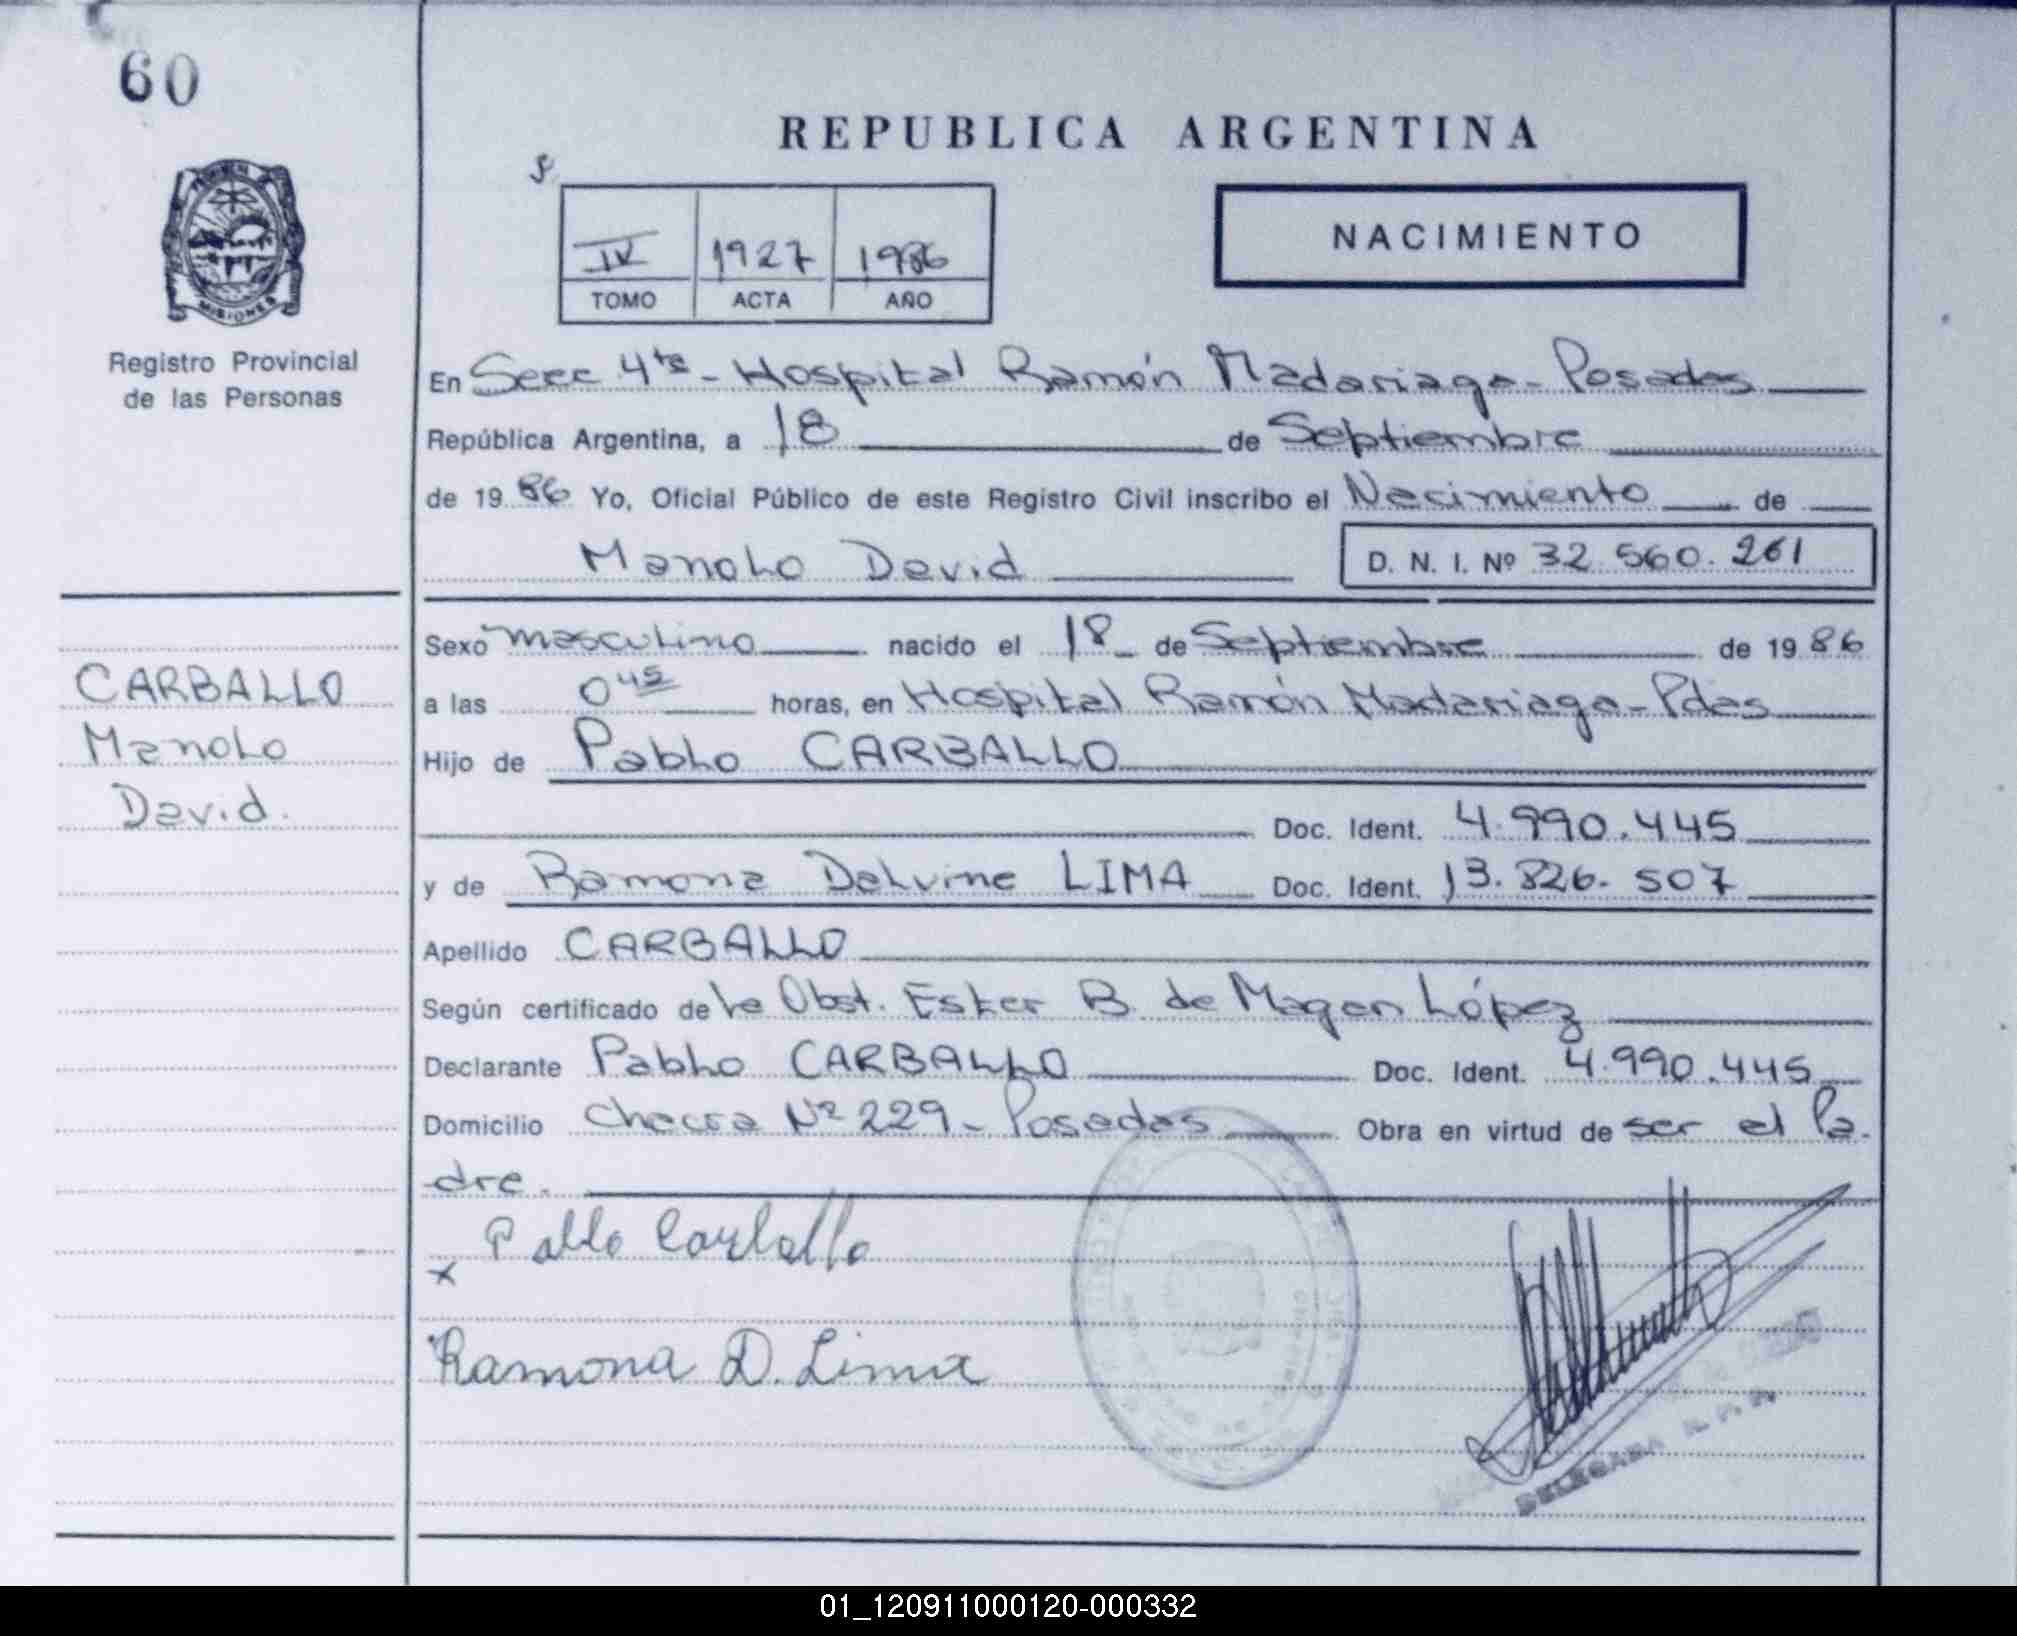 60
REPUBLICA ARGENTINA
IV 1927 1986
TOMO ACTA AÑO
NACIMIENTO
MISIONES
Registro Provincial
de las Personas
En Secc 4ta - Hospital Ramón Madariaga - Posadas
República Argentina, a 18 de Septiembre
de 1986 Yo, Oficial Público de este Registro Civil inscribo el Nacimiento de
Manolo David D. N. I. Nº 32.560.261
Sexo masculino nacido el 18 de Septiembre de 1986
a las 0 45 horas, en Hospital Ramón Madariaga - Pdas
Hijo de Pablo CARBALLO
Doc. Ident. 4.990.445
y de Ramona Delvine LIMA Doc. Ident. 13.826.507
Apellido CARBALLO
Según certificado de la Obst. Ester B. de Magan López
Declarante Pablo CARBALLO Doc. Ident. 4.990.445
Domicilio Chacra Nº 229 - Posadas Obra en virtud de ser el Pa-
dre.
CARBALLO
Manolo
David.
Pablo Carballo
x
Ramona D. Lima
DELEGADA R. P. P.
01_120911000120-000332